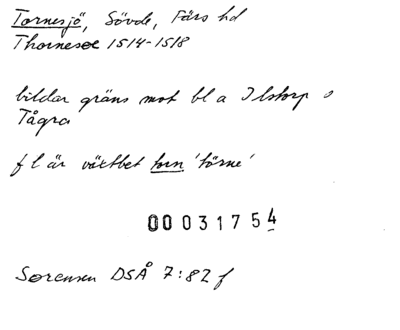 Tornesjö, Sövde, Färs hd
Thornesøe 1514-1518
bildar gräns mot bl a Ilstorp o
Tågra
f l är växtbet torn 'törne'
00 031754
Sørensen DSÅ 7:82 f